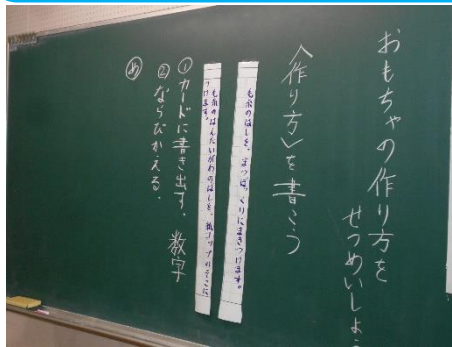 おもちゃの作り方を
せつめいしよう
〈作り方〉を書こう
毛糸のはしを、まつぼっくりにまきつけます。
毛糸のはんたいがわのはしを、紙コップのそこに
つけます。
①カードに書き出す。 数字
②ならびかえる。
め